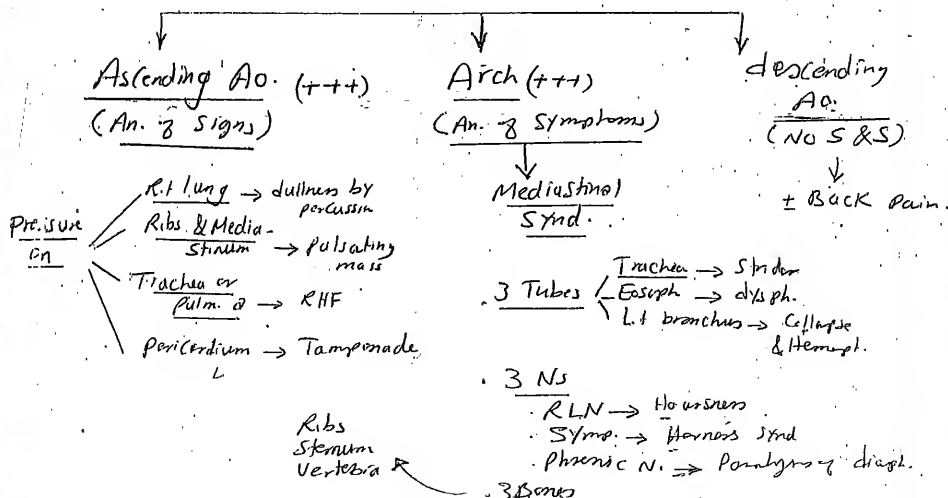 Ascending Ao. (+++)
(An. of Signs)
Pressure on
Rt lung → dullness by percussin
Ribs & Media-
Stinum → pulsating mass
Trachea or
Pulm. a → RHF
Pericardium → Tamponade
Arch (+++)
(An. of Symptoms)
Mediastinal
Synd.
. 3 Tubes
Trachea → Stridor
Eosoph → dysph.
Lt bronchus → Collapse
& Hemopt.
. 3 Ns
. RLN → Hoarsness
. Symp. → Horners Synd
. Phrenic N. → Paralysis of diaph.
. 3 Bones
Ribs
Sternum
Vertebra
descending
Ao.
(NO S & S)
± Back pain.